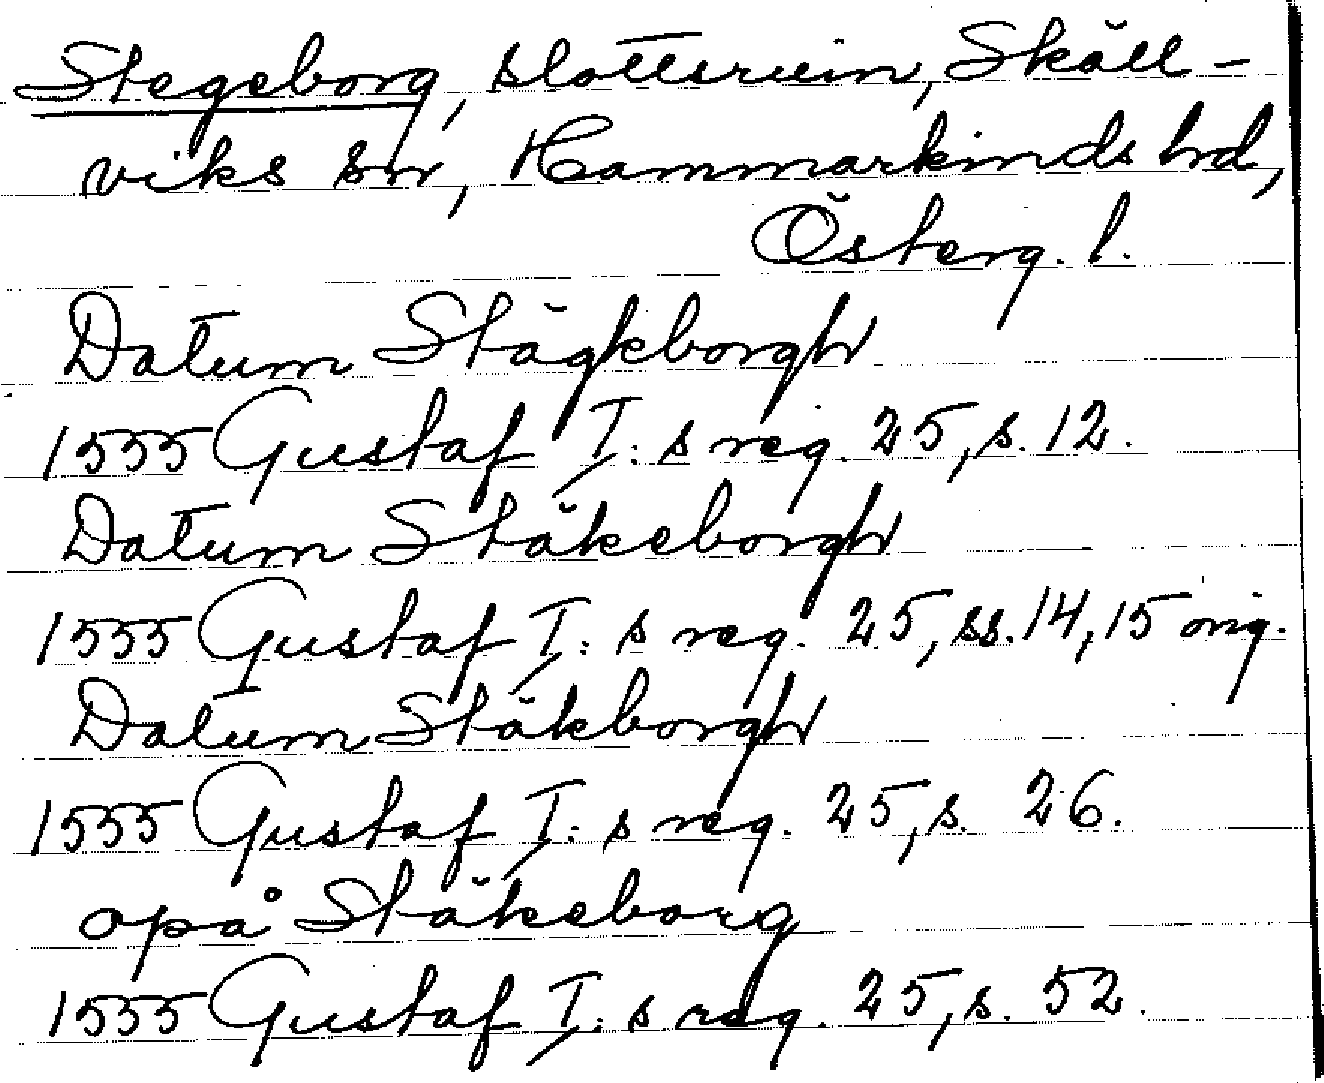 Stegeborg, slottsruin, Skäll-
viks sn, Hammarkinds hd,
Österg. l.
Datum Stägkborgh
1555 Gustaf I:s reg. 25, s. 12.
Datum Stäkeborgh
1555 Gustaf I:s reg. 25, ss. 14, 15 orig.
Datum Stäkborgh
1555 Gustaf I:s reg. 25, s. 26.
opå Stäkeborg
1555 Gustaf I:s reg. 25, s. 52.